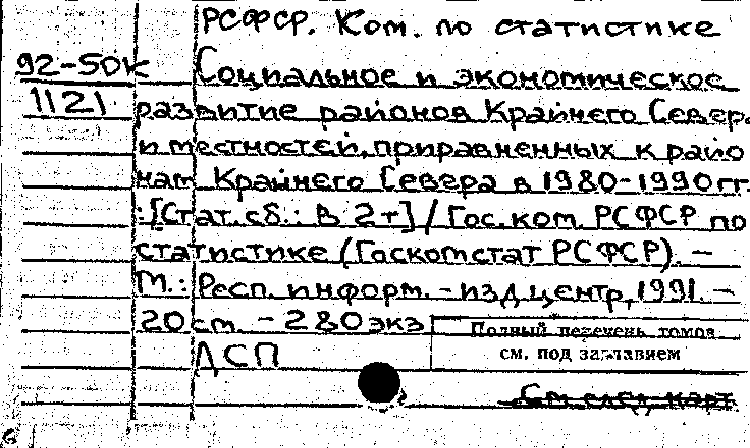 РСФСР. Ком. по статистике
92-5DK
1121
Социальное и экономическое
развитие районов Крайнего Север.
и местностей, приравненных к райо
нам Крайнего Севера в 1980-1990 гг.
: [Стат. сб.: В 2 т] / Гос. ком. РСФСР по
статистике (Госкомстат РСФСР). –
М.: Респ. информ. - изд. центр, 1991. –
20 см. – 280 экз
Полный перечень томов
см. под заглавием
ДСП
См след карт